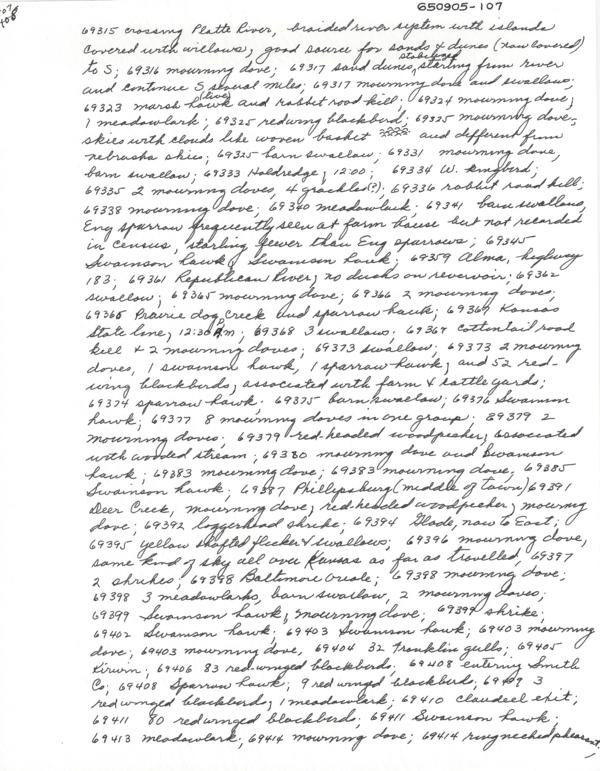 650905-107
408
69315 crossing Platte River, braided river system with islands
covered with willows, good source for sands & dunes (now covered)
stabilized
to S; 69316 mourning dove; 69317 sand dunes, starting from river
and continue S several miles; 69317 mourning dove and swallows;
(live)
69323 marsh hawk and rabbit road kill; 69324 mourning dove;
1 meadowlark; 69325 redwing blackbird; 69325 mourning dove,
skies with clouds like woven basket and different from
nebraska skies; 69325 barn swallow; 69331 mourning dove,
barn swallow; 69333 Holdredge, 12:00; 69334 W. kingbird;
69335 2 mourning doves, 4 grackles(?); 69336 rabbit road kill;
69338 mourning dove; 69340 meadowlark; 69341 barn swallows,
Eng sparrow frequently seen at farm house but not recorded
in census, starling fewer than Eng sparrows; 69345
Swainson hawk, Swainson hawk; 69359 Alma, highway
183; 69361 Republican River, no ducks on reservoir; 69362
swallow; 69365 mourning dove; 69366 2 mourning doves;
69366 Prairie dog creek and sparrow hawk; 69367 Kansas
State line, 12:30 Pm; 69368 3 swallows; 69369 cottontail road
kill & 2 mourning doves; 69373 swallow; 69373 2 mourning
doves, 1 swainson hawk, 1 sparrow hawk, and 52 red-
wing blackbirds, associated with farm & cattle yards;
69374 sparrow hawk. 69375 barn swallow; 69376 Swainson
hawk; 69377 8 mourning doves in one group. 89379 2
mourning doves; 69379 red-headed woodpecker, associated
with wooded stream; 69380 mourning dove and Swainson
hawk; 69383 mourning dove; 69383 mourning dove; 69385
Swainson hawk; 69387 Phillipsburg (middle of town) 69391
Deer Creek, mourning dove, red-headed woodpecker, mourning
dove; 69392 loggerhead shrike; 69394 Glade, now to East;
69395 yellow shafted flicker & swallows; 69396 mourning dove,
same kind of sky all over Kansas as far as travelled, 69397
2 shrikes; 69398 Baltimore oriole; 69398 mourning dove;
69398 3 meadowlarks, barn swallow, 2 mourning doves;
69399 Swainson hawk, mourning dove; 69399 shrike;
69402 Swainson hawk; 69403 Swainson hawk; 69403 mourning
dove; 69403 mourning dove, 69404 32 Franklin gulls; 69405
Kirwin; 69406 83 red-winged blackbirds; 69408 entering Smith
Co; 69408 Sparrow hawk; 9 red winged blackbird; 69409 3
red winged blackbird; 1 meadowlark; 69410 exit;
69411 80 red winged blackbird; 69411 Swainson hawk;
69413 meadowlark; 69414 mourning dove; 69414 ring necked pheasant;